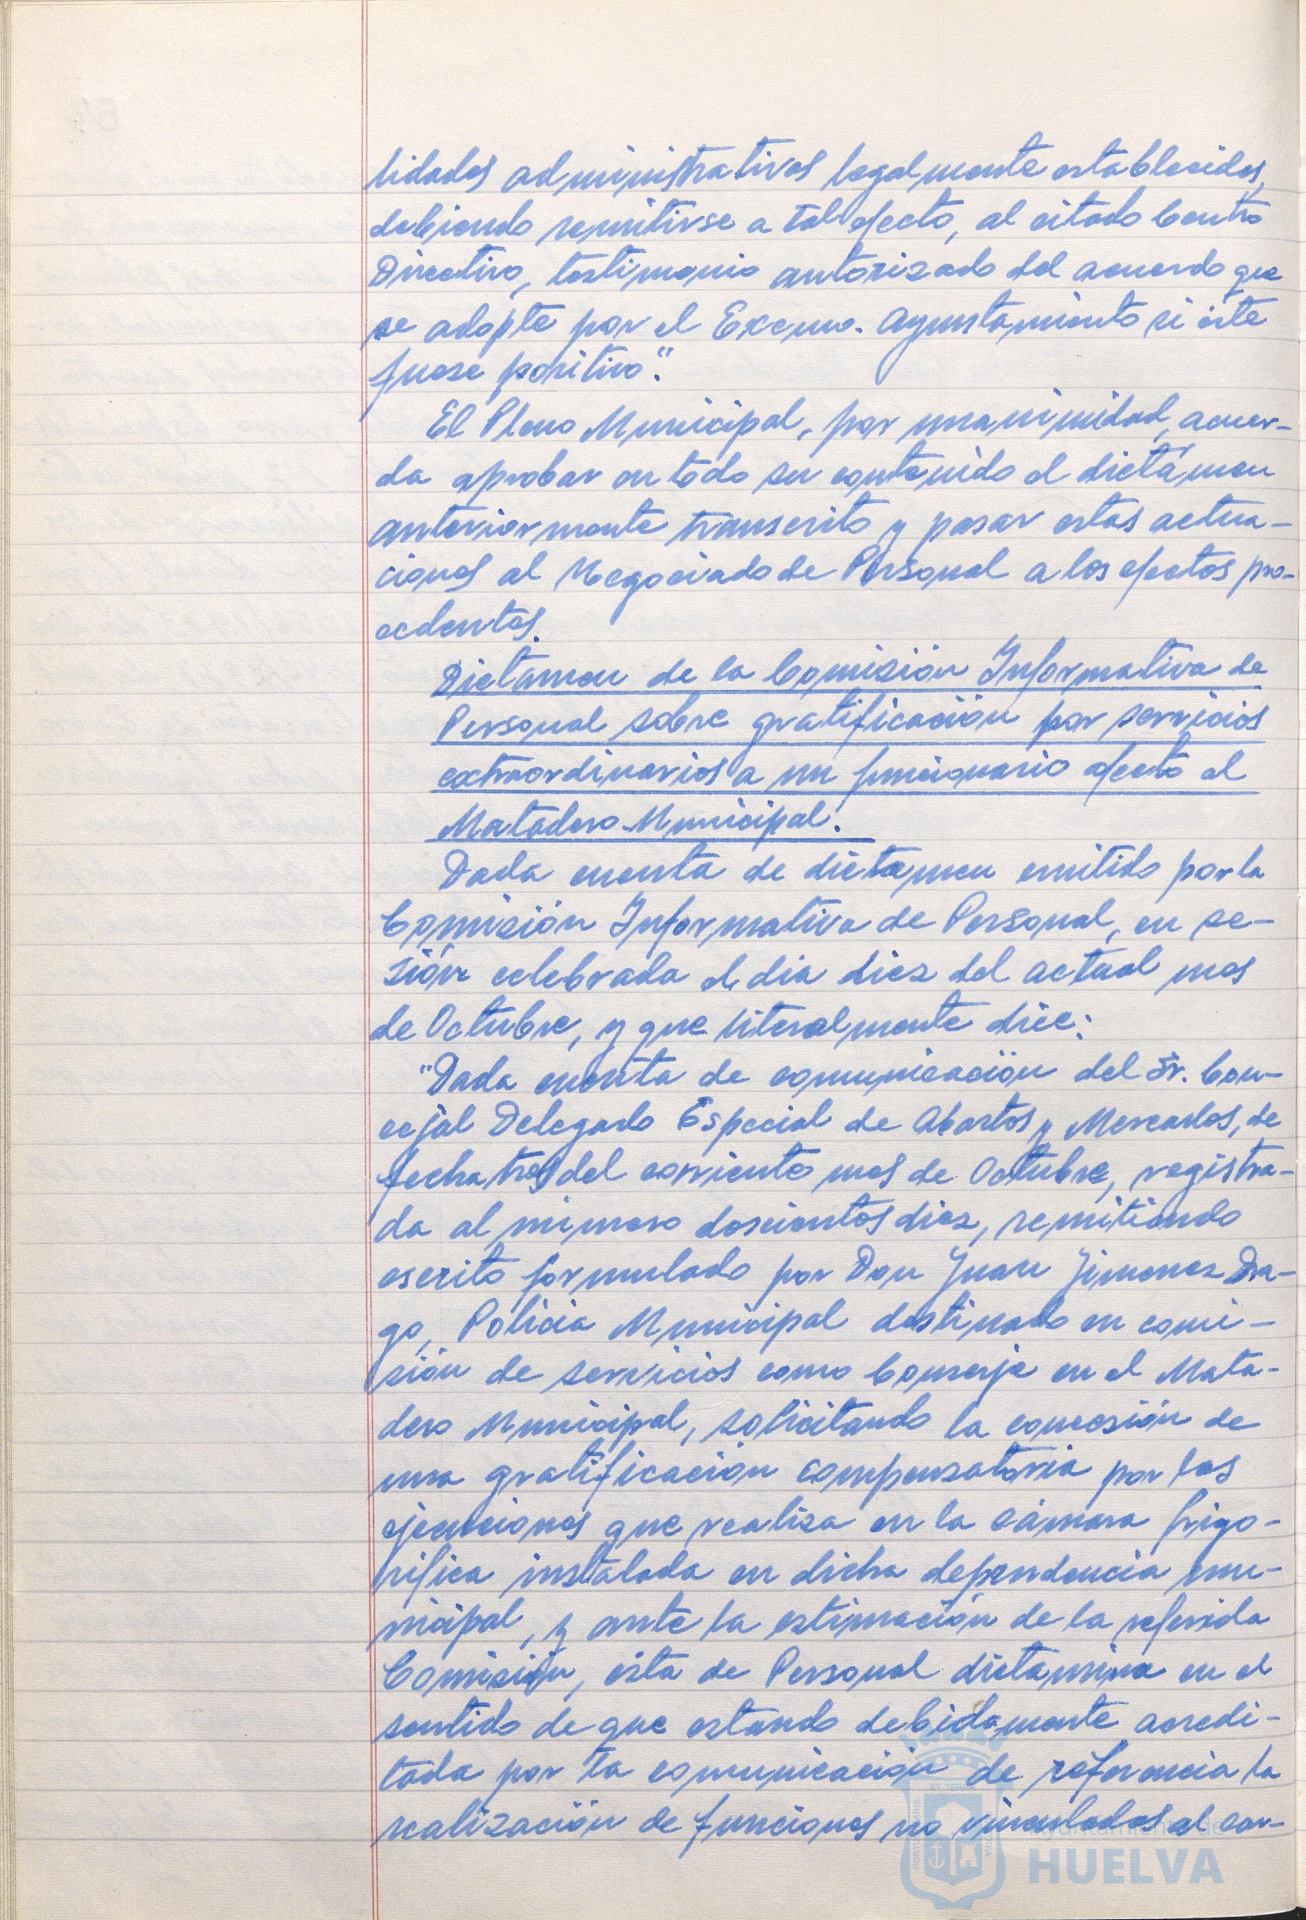 lidades administrativas legalmente establecidas,
debiendo remitirse a tal efecto, al citado Centro
Directivo, testimonio autorizado del acuerdo que
se adopte por el Excmo. Ayuntamiento si éste
fuese positivo".
El Pleno Municipal, por unanimidad, acuer-
da aprobar en todo su contenido el dictámen
anteriormente transcrito y pasar estas actua-
ciones al Negociado de Personal a los efectos pro-
cedentes.
Dictamen de la Comisión Informativa de
Personal sobre gratificación por servicios
extraordinarios a un funcionario afecto al
Matadero Municipal.
Dada cuenta de dictamen emitido por la
Comisión Informativa de Personal, en se-
sión celebrada el dia diez del actual mes
de Octubre, y que literalmente dice:
"Dada cuenta de comunicación del Sr. Con-
cejal Delegado Especial de Abastos y Mercados, de
fecha tres del corriente mes de Octubre, registra-
da al número doscientos diez, remitiendo
escrito formulado por Don Juan Jimenez Dra-
go, Policia Municipal destinado en comi-
sión de servicios como Conserje en el Mata-
dero Municipal, solicitando la concesión de
una gratificación compensatoria por las
ejecuciones que realiza en la cámara frigo-
rífica instalada en dicha dependencia mu-
nicipal, y ante la estimación de la referida
Comisión, ésta de Personal dictamina en el
sentido de que estando debidamente acredi-
tada por la comunicación de referencia la
realización de funciones no vinculadas al car-
Ayuntamiento de
HUELVA